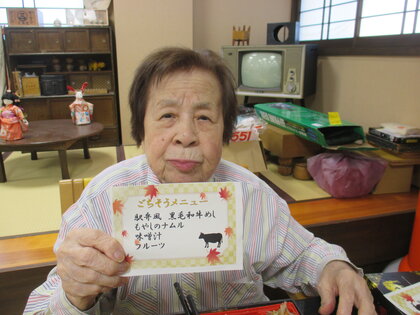 ごちそうメニュー
駅弁風 黒毛和牛めし
もやしのナムル
味噌汁
フルーツ